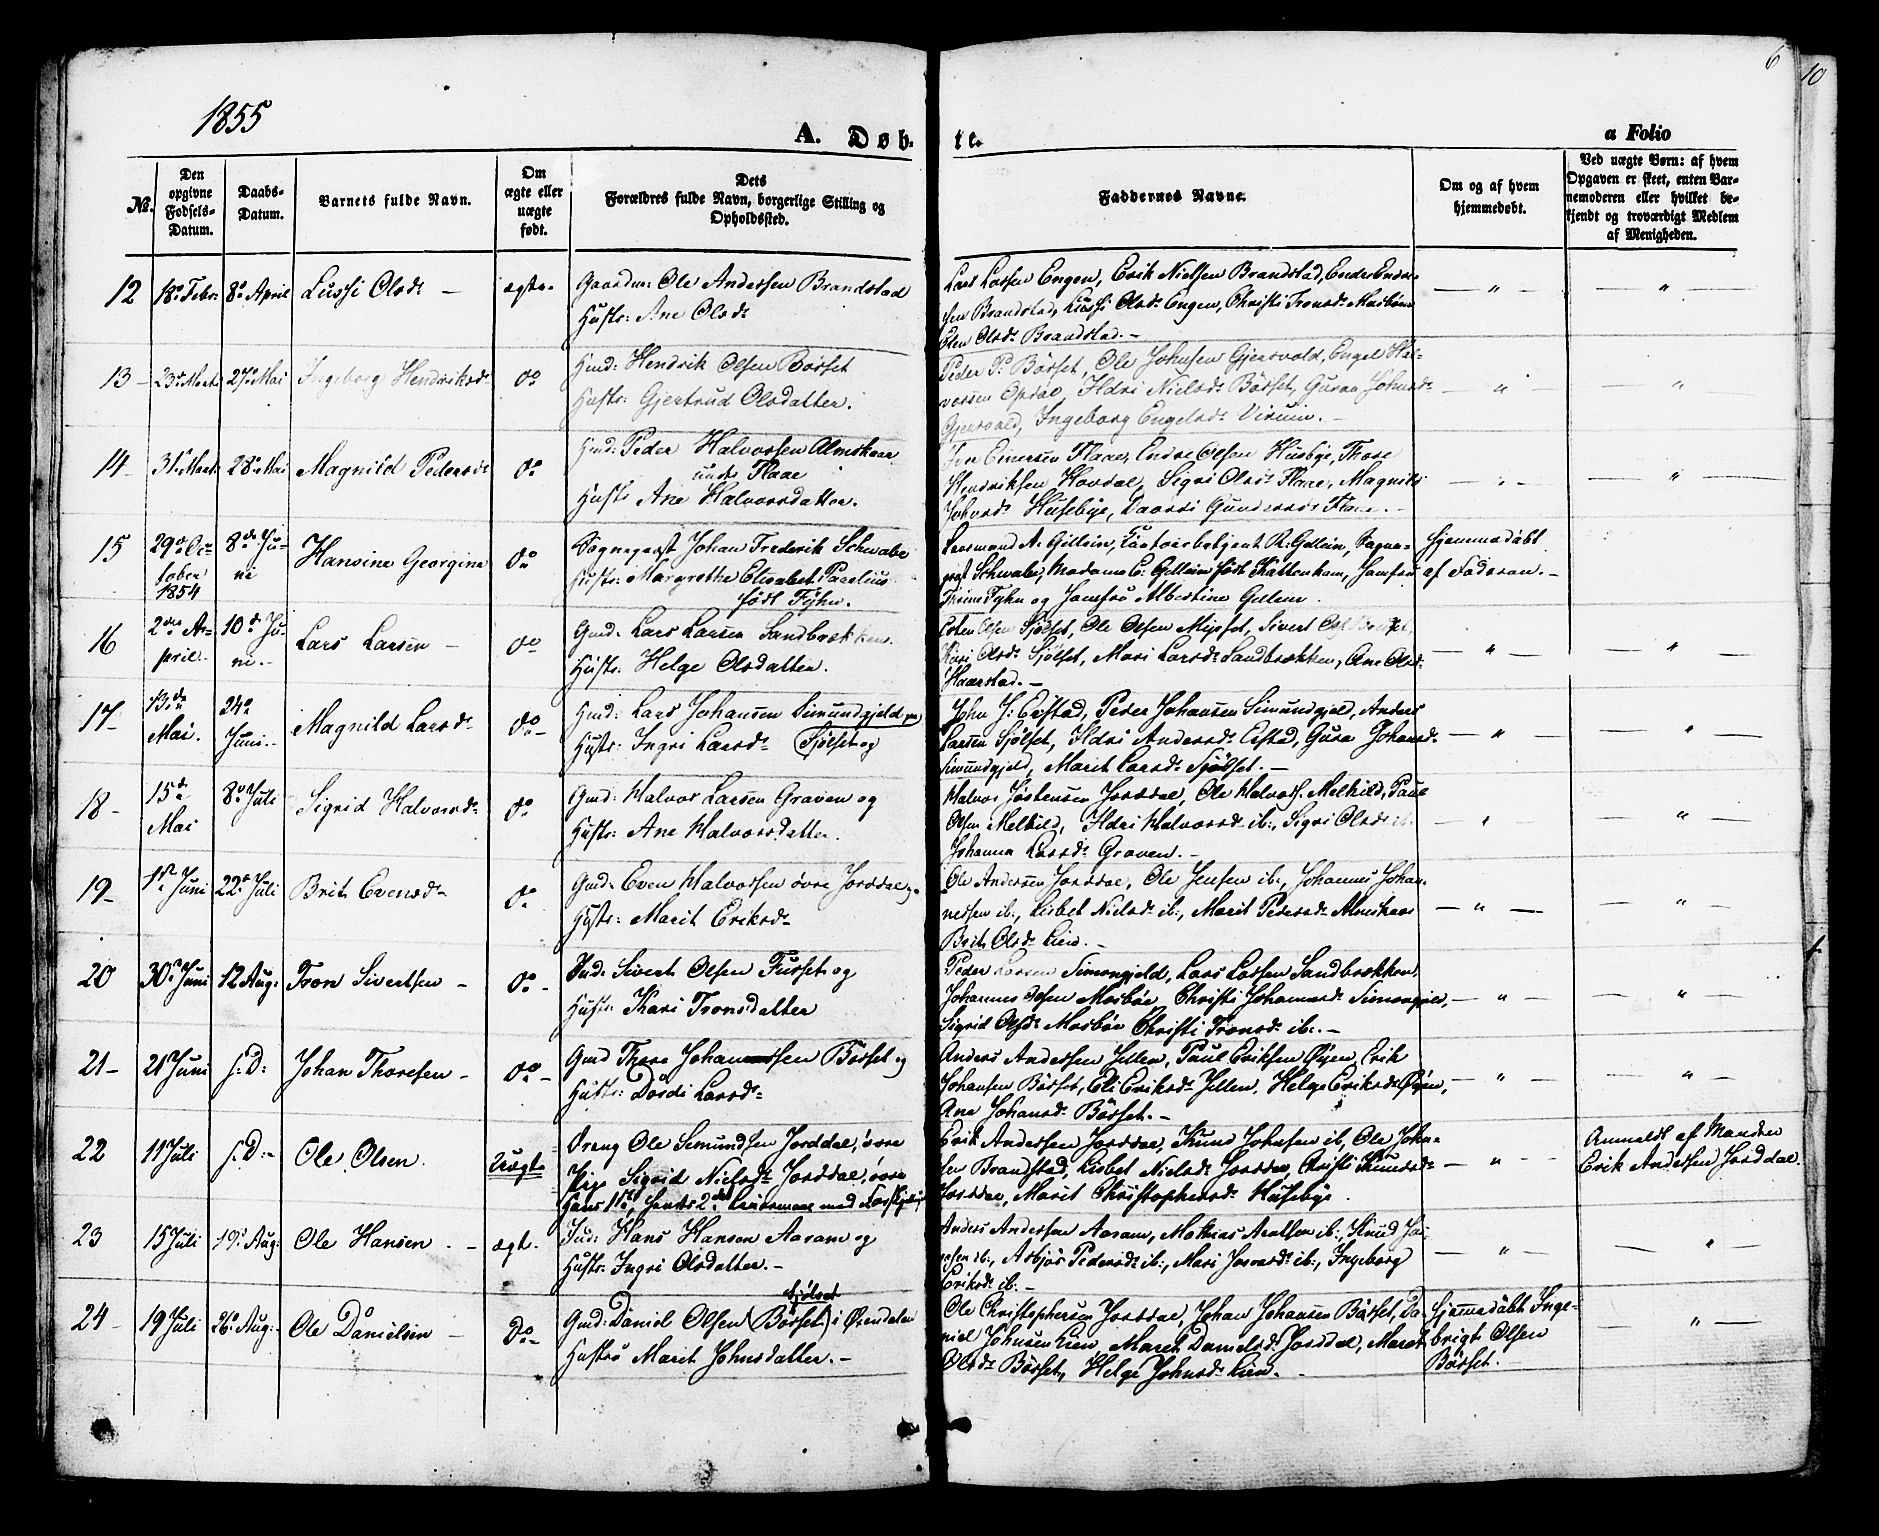 6
10
1855
A. Døb-
te.
a Folio
No.
Den opgivne Fødsels-Datum.
Daabs-Datum.
Barnets fulde Navn.
Om ægte eller uægte født.
Dets Forældres fulde Navn, borgerlige Stilling og Opholdssted.
Faddernes Navne.
Om og af hvem hjemmedøbt.
Ved uægte Børn: af hvem Opgaven er skeet, enten Barnemoderen eller hvilket bekjendt og troværdigt Medlem af Menigheden.
12 18de Febr. 8de April Lussi Olsdr – ægte Gaardm: Ole Andersen Brandstad
Hustr: Ane Olsdr
Lars Larsen Engen, Erik Nielsen Brandstad, Ender Ender-
sen Brandstad, Lussi Olsdr Engen, Christi Tronsdr Mosbøe
Elen Olsdr Brandstad. –
13 – 23de Marts 27de Mai Ingeborg Hendriksdr do Gmd: Hendrik Olsen Børset
Hustr: Gjertrud Olsdatter.
Peder P. Børset, Ole Johnsen Gjersvold, Engel Hal-
vorsen Opdal, Ildri Nielsdr Børset, Guran Johnsdr
Gjersvold, Ingeborg Engelsdr Virum. –
14 – 31te Marts 28de Mai Magnild Pedersdr do Gmd: Peder Halvorsen Almskaar
under Flaae
Hustr Ane Halvorsdatter.
Iver Einersen Flaae, Endre Olsen Husbye, Thore
Hendriksen Hovdal, Sigri Olsdr Flaae, Magnild
Johnsdr Husebye, Daardi Gundersdr Flaae. –
15 29de Oc-
tober
1854 8de Ju-
ni Hansine Georgine do Sognepræst Johan Frederik Schwabe
Hustr: Margrethe Elisabet Pacelius
født Tyhn.
Lensmand A. Gillein, R. Gellein, Sogne-
præst Schwabe, Madame C. Gellein født Kattenham, Jomfru
Trine Tyhn og Jomfru Albertine Gellein.
Hjemmedøbt
af Faderen. –
16 2den A-
pril. 10de Ju-
ni. – Lars Larsen – do Gmd: Lars Larsen Sandbrækken
Hustr: Helge Olsdatter.
Esten Olsen Sjølset, Ole Olsen Mijset, Sivert
Kari Olsdr Sjølset, Mari Larsdr Sandbrækken, Ane Olsdr
Haarstad. –
17 – 13de
Mai. 24de
Juni. Magnild Larsdr do – Gmd: Lars Johansen Simundgjeld
Hustr: Ingri Larsdr Sjølset og
John J: Erstad, Peder Johansen Simundgjeld, Anders
Larsen Sjølset, Ildri Andersdr Erstad, Gura Johansdr
Simundgjeld, Marit Larsdr Sjølset. –
18 – 15de
Mai 8de Juli Sigrid Halvorsdr do Gmd: Halvor Larsen Graven og
Hustr: Ane Halvorsdatter.
Halvor Jostensen Jorddal, Ole Halvors. Melkild, Paul
Olsen Melkild, Ildri Halvorsdr ib:, Sigri Olsdr ib:
Johanna Larsdr Graven. –
19 – 1ste Juni 22de Juli Brit Evensdr do Gmd: Even Halvorsen øvre Jorddal og
Hustr: Marit Eriksdr
Ole Andersen Jorddal, Ole Jensen ib:, Johannes Johan-
nessen ib:, Lisbet Nielsdr ib:, Marit Pedersdr Almskaar
Brit Olsdr Lien. –
20 30te Juni 12 Aug: Tron Sivertsen – do – Gmd: Sivert Olsen Furset og
Hustr: Kari Tronsdatter
Peder Larsen Simongjeld, Lars Larsen Sandbrækken,
Johannes Olsen Mosbøe, Christi Johannesdr Simongjeld,
Sigrid Olsdr Mosbøe Christi Tronsdr ib: –
21 – 21 Juni s:D: Johan Thoresen – do – Gmd Thore Johansen Børset og
Hustr: Dordi Larsdr
Anders Andersen Jellen, Paul Eriksen Øyen, Erik
Johansen Børset, Eli Eriksdr Jellen, Helge Eriksdr Øyen,
Ane Johansdr Børset. –
22 11 Juli s:D: – Ole Olsen. Uægte Dreng Ole Simundsen Jorddal, øvre
Pige Sigrid Nielsdr Jorddal, øvre
Hans 1ste, hendes 2det Leiermaal med Forskjellig
Erik Andersen Jorddal, Knud Johnsen ib, Ole John-
sen Brandstad, Lisbet Nielsdr Jorddal, Christi Knudsdr
Jorddal, Marit Christophersdr Husebye.
Anmeldt af Manden
Erik Andersen Jorddal.
23 15 Juli 19de Aug: Ole Hansen. – ægte. Ind: Hans Hansen Aaram og
Hustr: Ingri Olsdatter. –
Anders Andersen Aaram, Mathias Arntsen ib:, Knud
ib:, Asbjør Pedersdr ib:, Mari ib:, Ingeborg
Eriksdr ib: –
24 – 19 Juli 26de Aug: Ole Danielsen – Do – Gmd: Daniel Olsen (Børset) i Øxendalen
Sjølset
Hustru Marit Johnsdatter. –
Ole Christophersen Jorddal, Johan Johansen Børset, Da-
niel Johnsen Lien, Maret Danielsdr Jorddal, Maret
Olsdr Børset, Helge Johnsdr Lien. –
Hjemmedøbt Inge-
brigt Olsen
Børset.